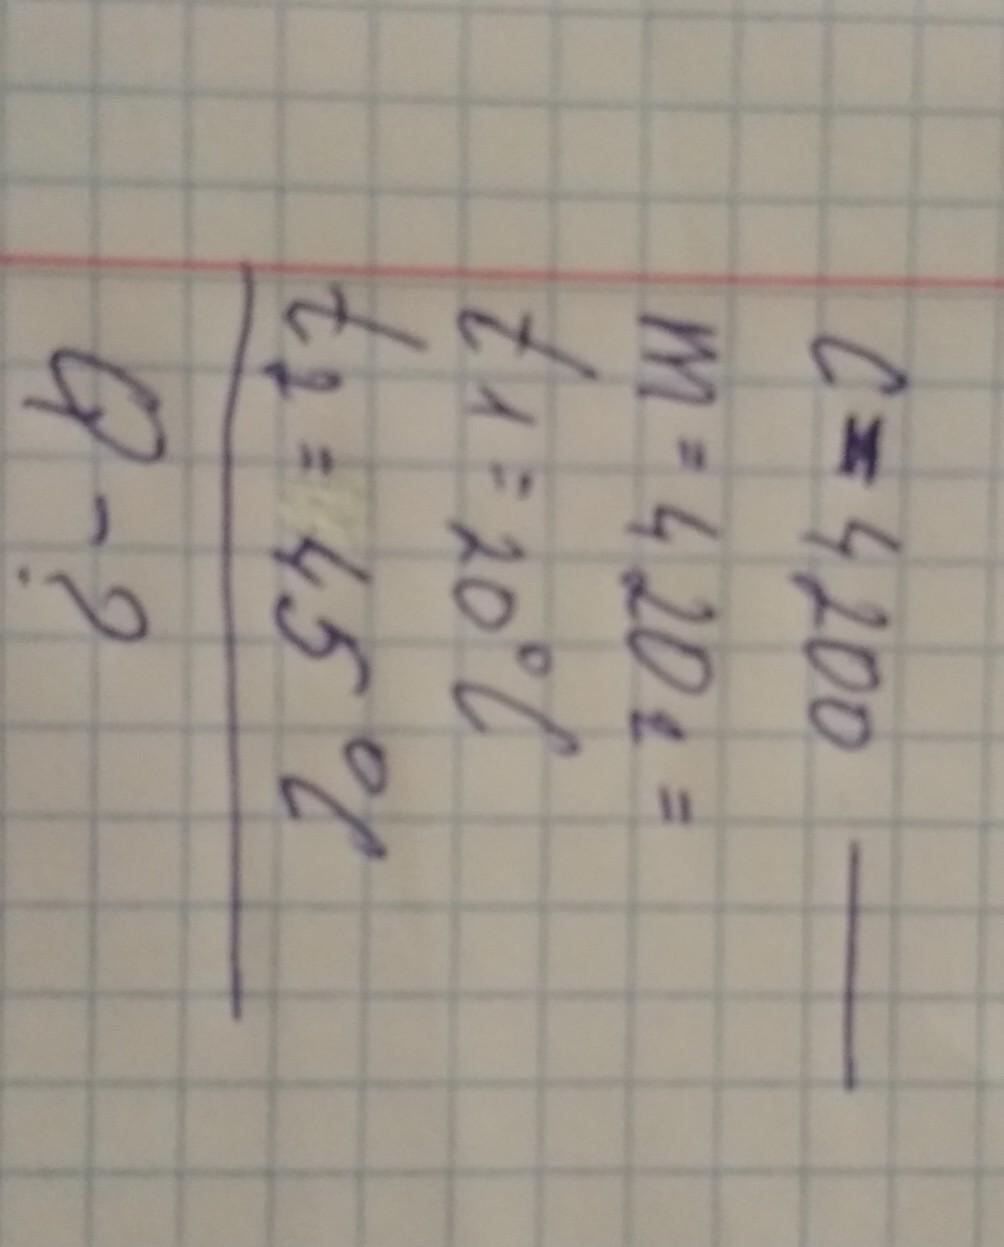 C = 4200 —
m = 420 г =
t1 = 20°C
t2 = 45°C
Q - ?